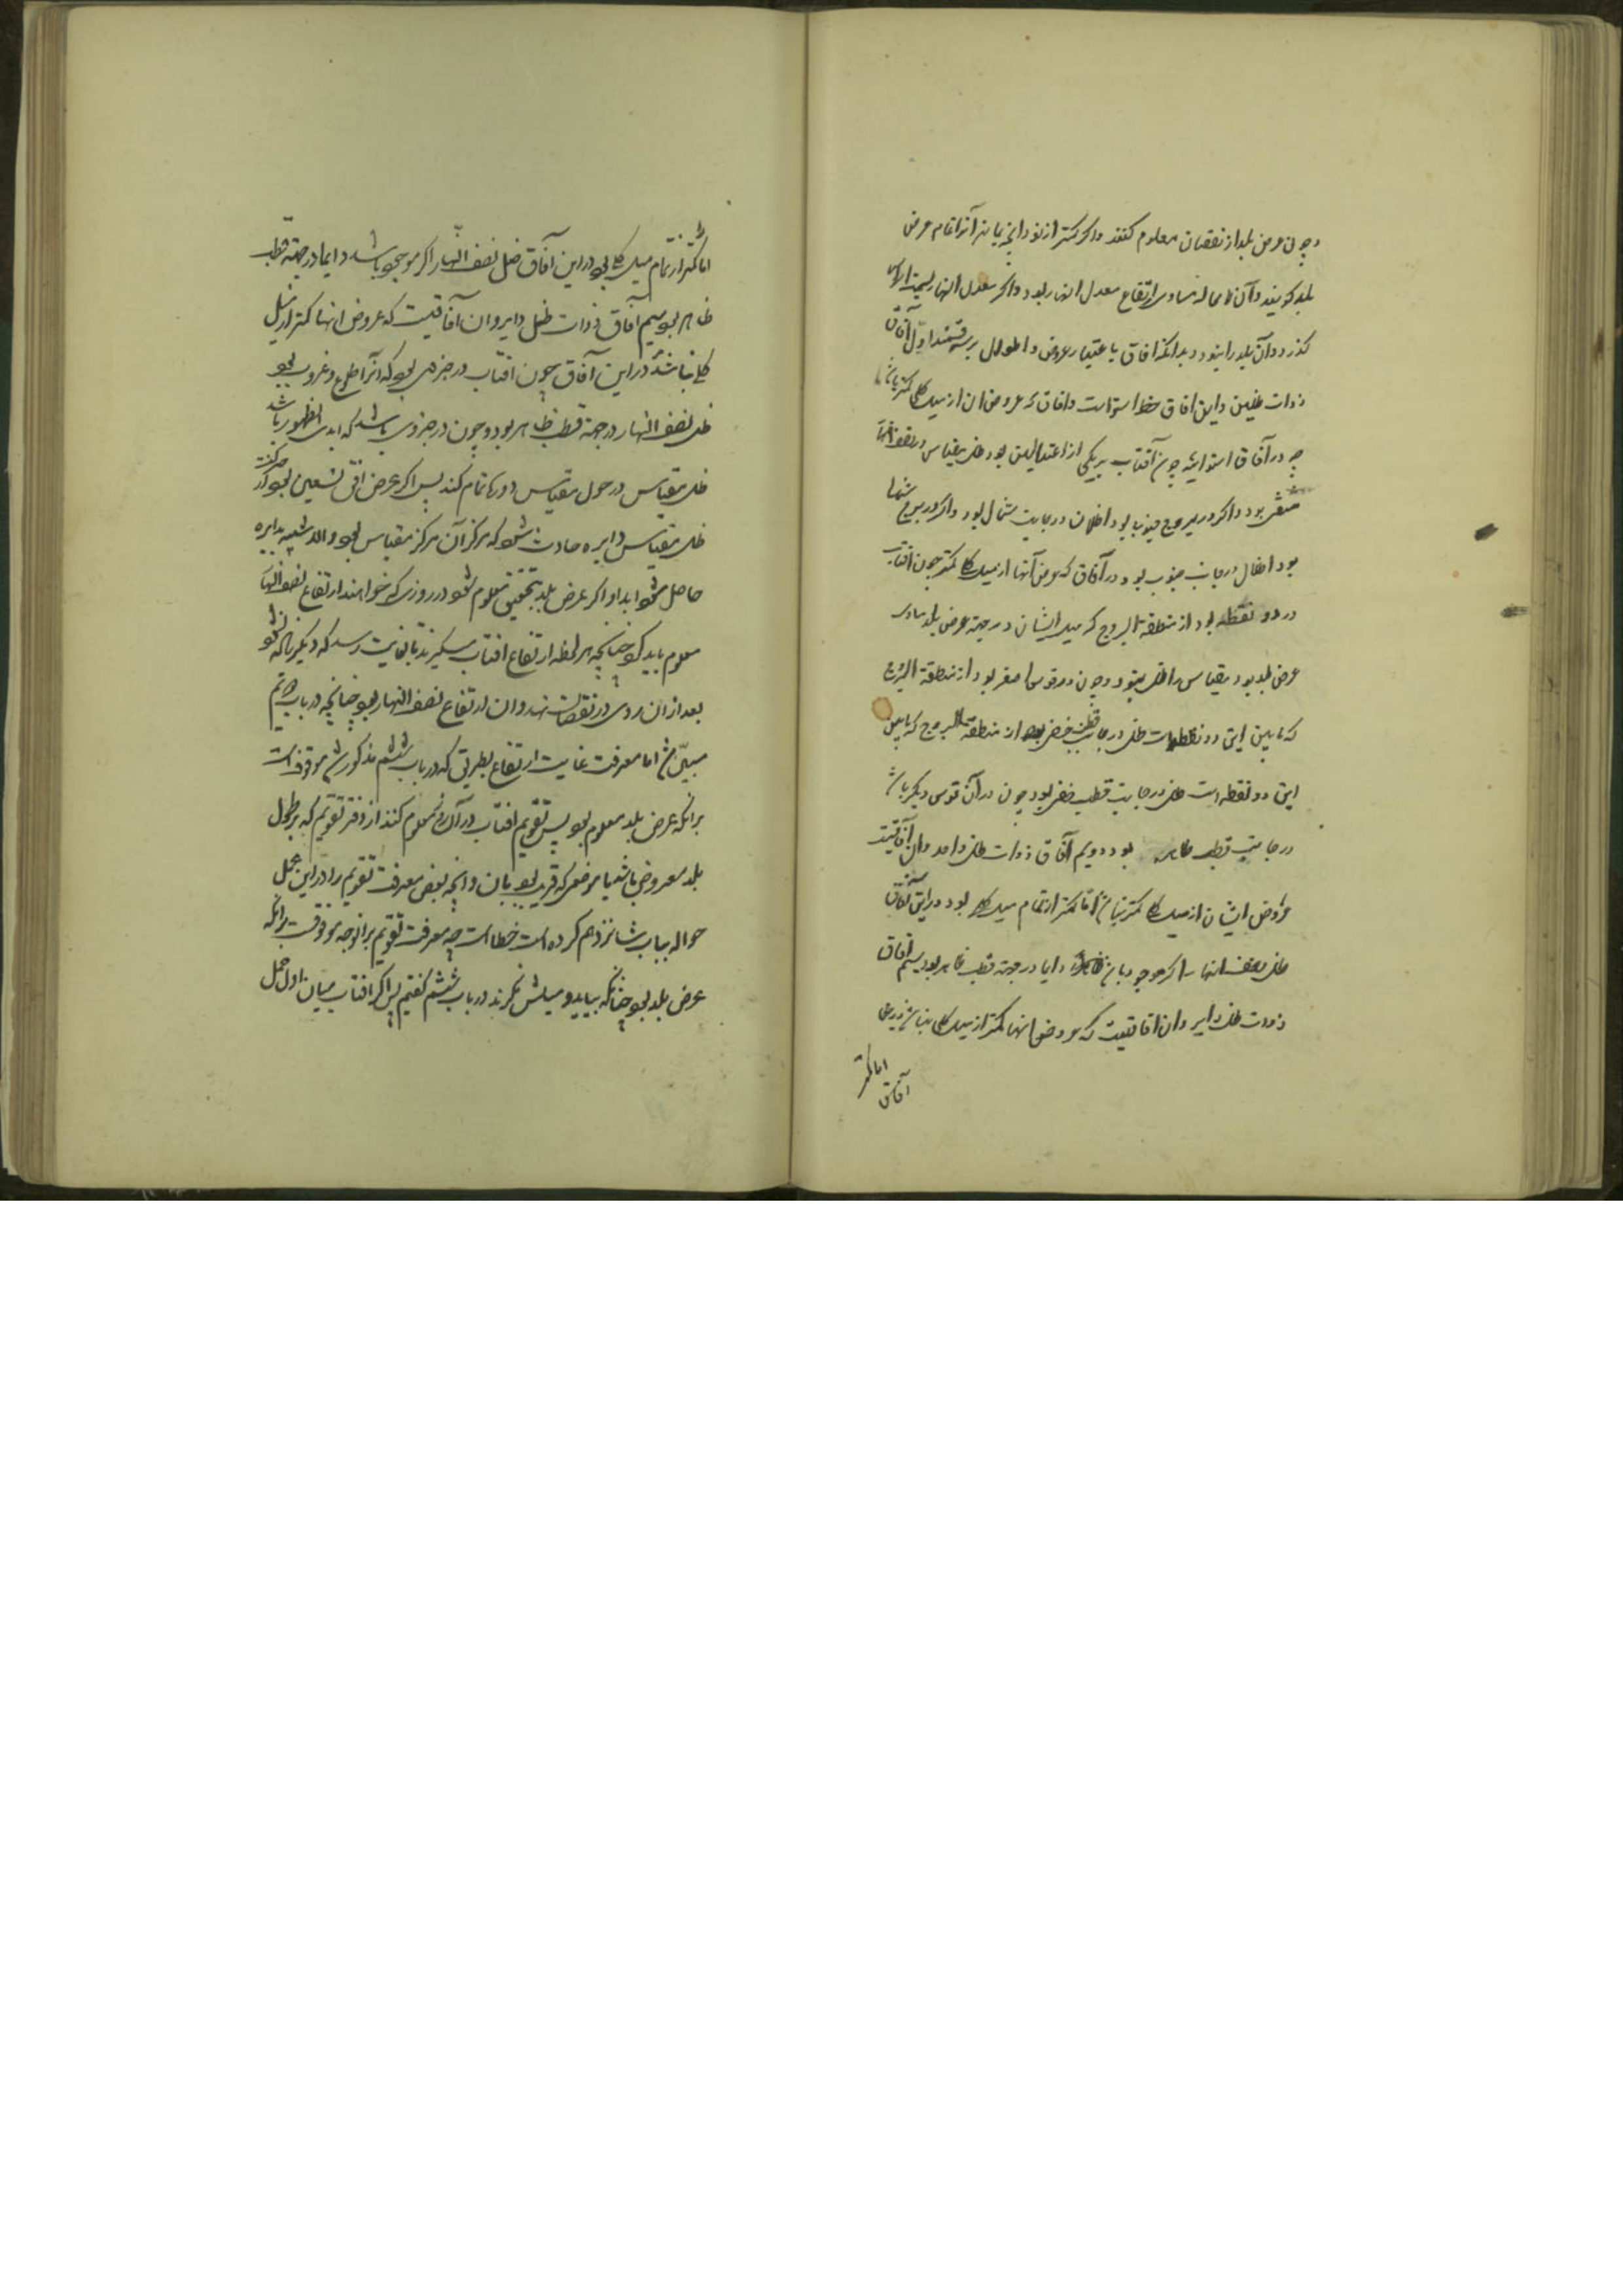 و چون عرض بلد از نقصان معلوم کنند و اگر کمتر از نود آنچه بماند آنرا تمام عرض
بلد گویند و آن لا محاله مساوی ارتفاع معدل النهار بود و اگر معدل النهار بسمت الراس
گذرد و آن بلد را نبود و بدانکه آفاق باعتبار عروض و اطوال بر سه قسمند اول آفاق
ذوات ظلین و این آفاق خط استواست و آفاق که عروض آن از میل کلی کمتر باشد
چه در آفاق استوائیه چون آفتاب بر یکی از اعتدالین بود ظل مقیاس در نصف النهار
منتفی بود و اگر در بروج جنوب بود اظلال در جانب شمال بود و اگر در بروج شمال
بود اظلال در جانب جنوب بود و در آفاق که عرض آنها از میل کلی کمتر چون آفتاب
در دو نقطه بود از منطقة البروج که میل ایشان در جهة عرض بلد مساوی
عرض بلد بود مقیاس را ظل نبود و چون در قوس اصغر بود از منطقة البروج
که مابین این دو نقطه است ظل در جانب قطب خفی بود از منطقة البروج که مابین
این دو نقطه است ظل در جانب قطب خفی بود چون در آن قوس دیگر باشد
در جانب قطب ظاهر بود دویم آفاق ذوات ظل واحد و آن آفاقیست
عروض ایشان از میل کلی کمتر نباشد اما کمتر از تمام میل کلی بود در این آفاق
ظل نصف النهار اگر موجود باشد دایما در جهة قطب ظاهر بود سیم آفاق
ذوات ظل دایر و آن آفاقیست که عروض آنها کمتر از میل کلی نباشد
اما کمتر
آفاق
اما کمتر از تمام میل کلی بود در این آفاق ظل نصف النهار اگر موجود باشد دایما در جهة قطب
ظاهر بود سیم آفاق ذوات ظل دایر و آن آفاقیست که عروض آنها کمتر از میل
کلی نباشد در این آفاق چون آفتاب در جزوی بود که آنرا طلوع و غروب بود
ظل نصف النهار در جهة قطب ظاهر بود و چون در جزوی باشد که ابدی الظهور باشد
ظل مقیاس در حول مقیاس دوره تمام کند پس اگر عرض افق تسعین بود از حرکت
ظل مقیاس دایره حادث شود که مرکز آن مرکز مقیاس بود و الا شبیه بدایره
حاصل شود ابدا و اگر عرض بلد بتحقیق معلوم شود در روزی که خواهند ارتفاع نصف النهار
معلوم باید کرد چنانچه هر لحظه ارتفاع آفتاب میگیرند تا بغایت رسد که دیگر زیاده نشود
بعد از آن روی در نقصان نهد و آن ارتفاع نصف النهار بود چنانچه در باب
مبین شد اما معرفت غایت ارتفاع بطریقی که در باب ششم مذکور شد موقوفست
برآنکه عرض بلد معلوم بود پس تقویم آفتاب در آن روز معلوم کنند از دفتر تقویم که بر طول
بلد معروض باشد یا موضعی که قریب بود بآن و آنچه بعضی معرفت تقویم را در این محل
حواله بباب شانزدهم کرده است خطاست چه معرفت تقویم بر آنوجه موقوفست برآنکه
عرض بلد بود چنانکه بیاید و میلش بگیرند در باب ششم گفتیم پس اگر آفتاب میان اول حمل